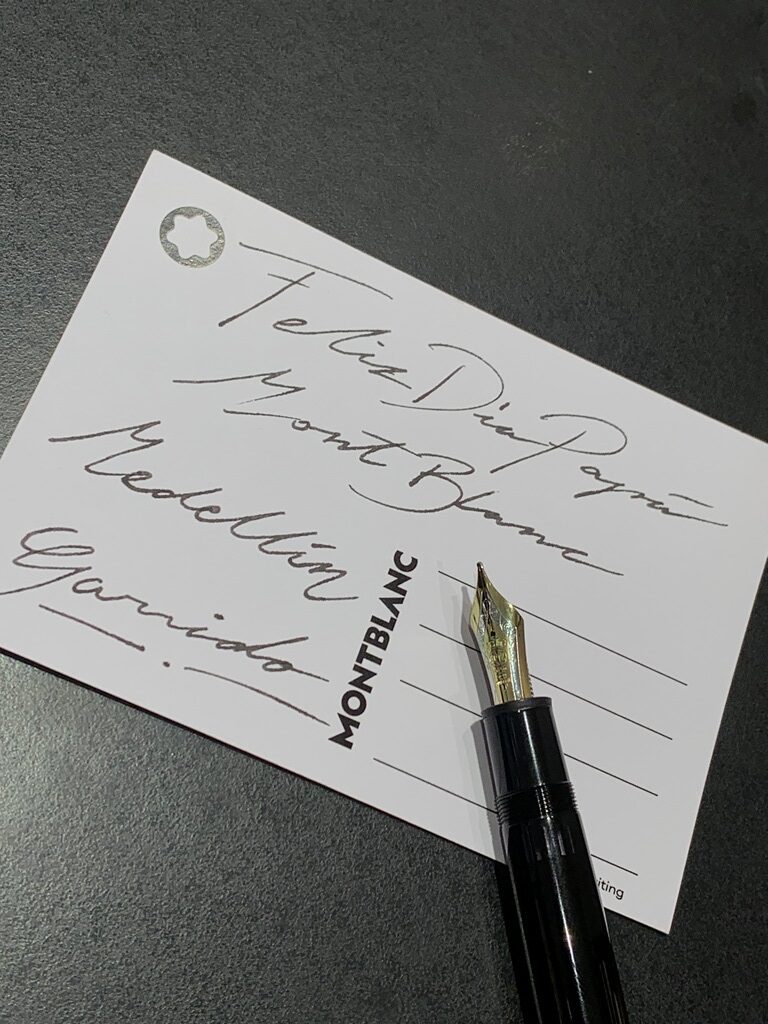 Feliz Dia Papá
MontBlanc
Medellín
Garrido
MONTBLANC